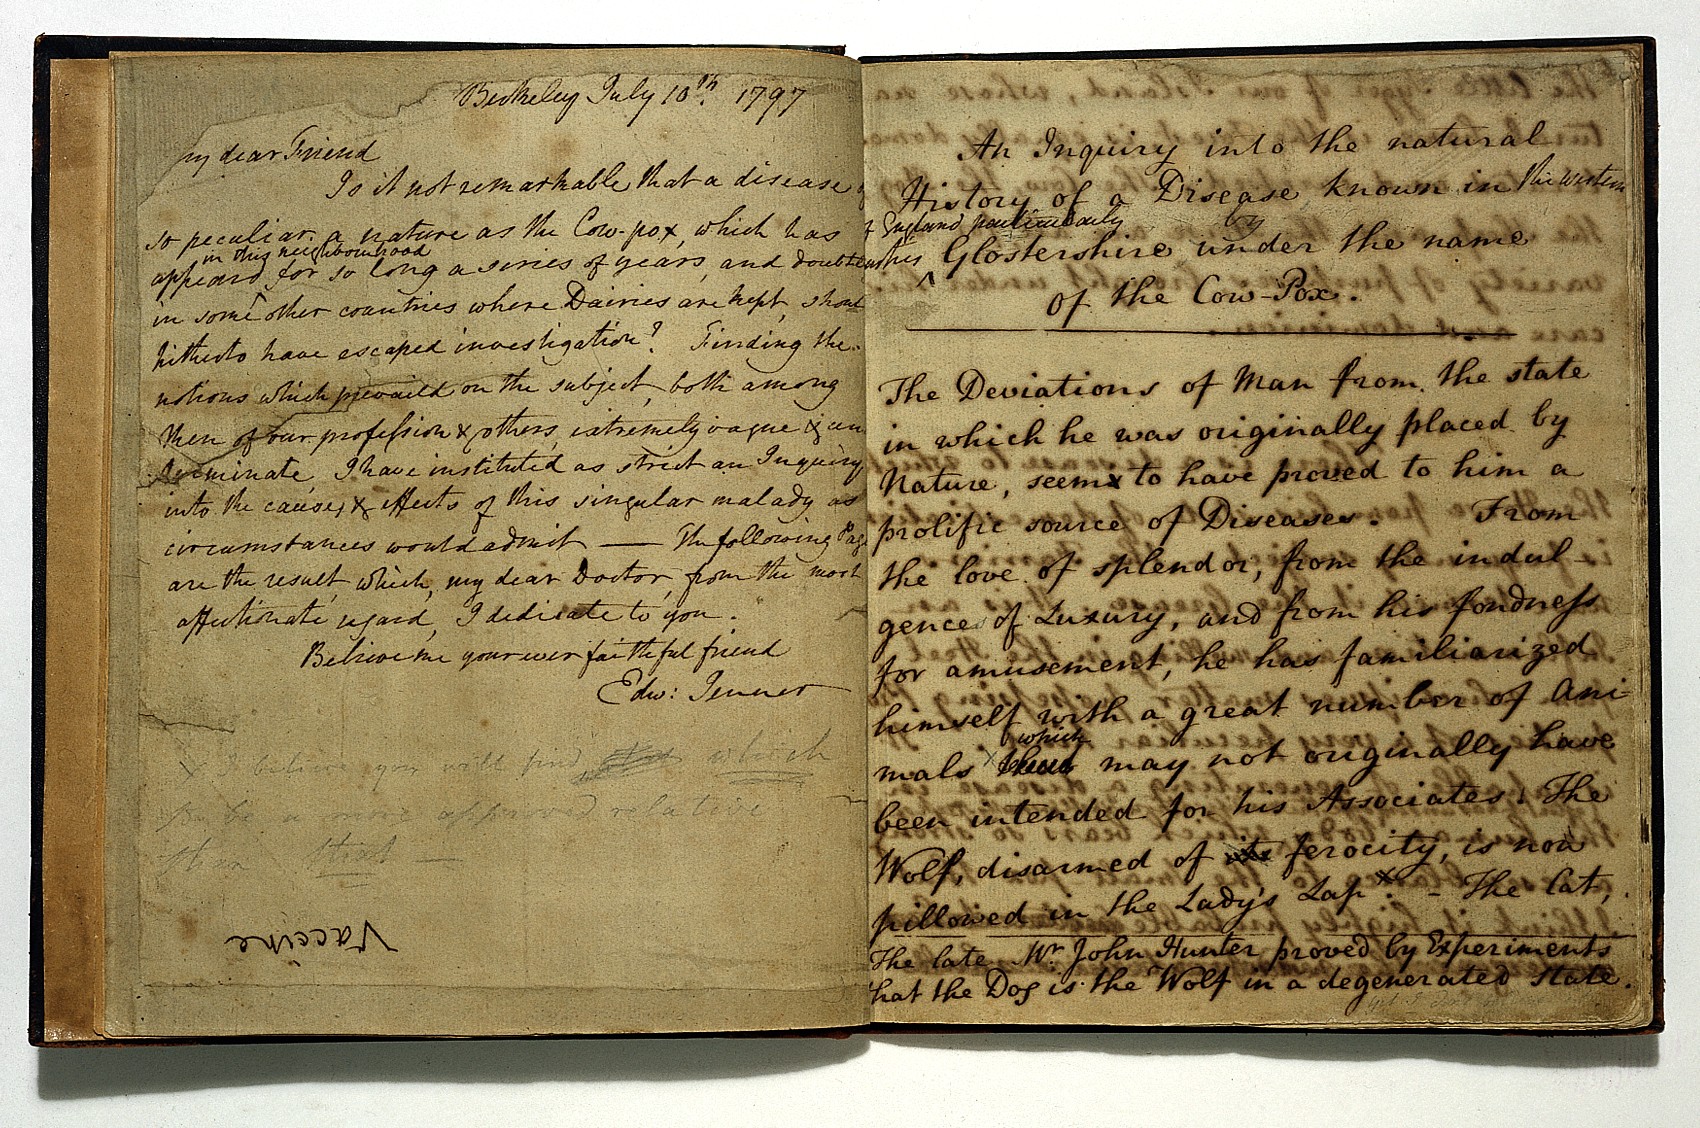 Berkeley July 10th. 1797
my dear Friend
Is it not remarkable that a disease of
so peculiar a nature as the Cow-pox, which has
in this neighbourhood
appeard for so long a series of years, and doubtless
in some other countries where Dairies are kept, should
hitherto have escaped investigation? Finding the
notions which prevaild on the subject, both among
Men of our profession & others, extremely vague &
I have instituted as strict an Inquiry
into the causes, & effects of this singular malady as
circumstances would admit — The following Page
are the result, which, my dear Doctor, from the most
affectionate regard, I dedicate to you.
Believe me your ever faithful friend
Edw: Jenner
x I believe you will find which
to be a more approved relative
than that —
Vaccine
An Inquiry into the natural
History of a Disease known in this western
of England particularly by
this Glostershire under the name
of the Cow-Pox.
The Deviations of Man from the state
in which he was originally placed by
Nature, seem to have proved to him a
prolific source of Diseases. From
the love of splendor, from the indul-
gences of Luxury, and from his fondness
for amusement, he has familiarized
himself with a great number of Ani-
which
mals x may not originally have
been intended for his Associates. The
Wolf, disarmed of ferocity, is now
pillowed in the Lady's Lap x. - The Cat,
The late Mr. John Hunter proved by Experiments
that the Dog is the Wolf in a degenerated State.